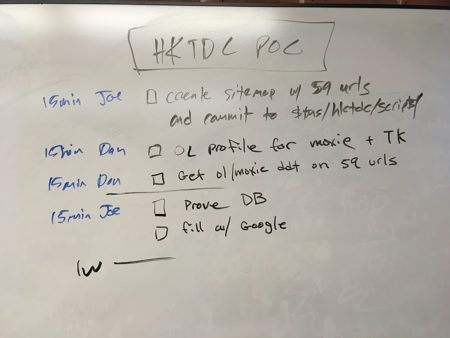 HKTDC POC
15min Joe □ create sitemap w/ 59 urls
and commit to
15min Dan □ OL profile for moxie + TK
15min Dan □ Get ol/moxie ddt on 59 urls
15min Joe □ Prove DB
□ fill w/ Google
1w